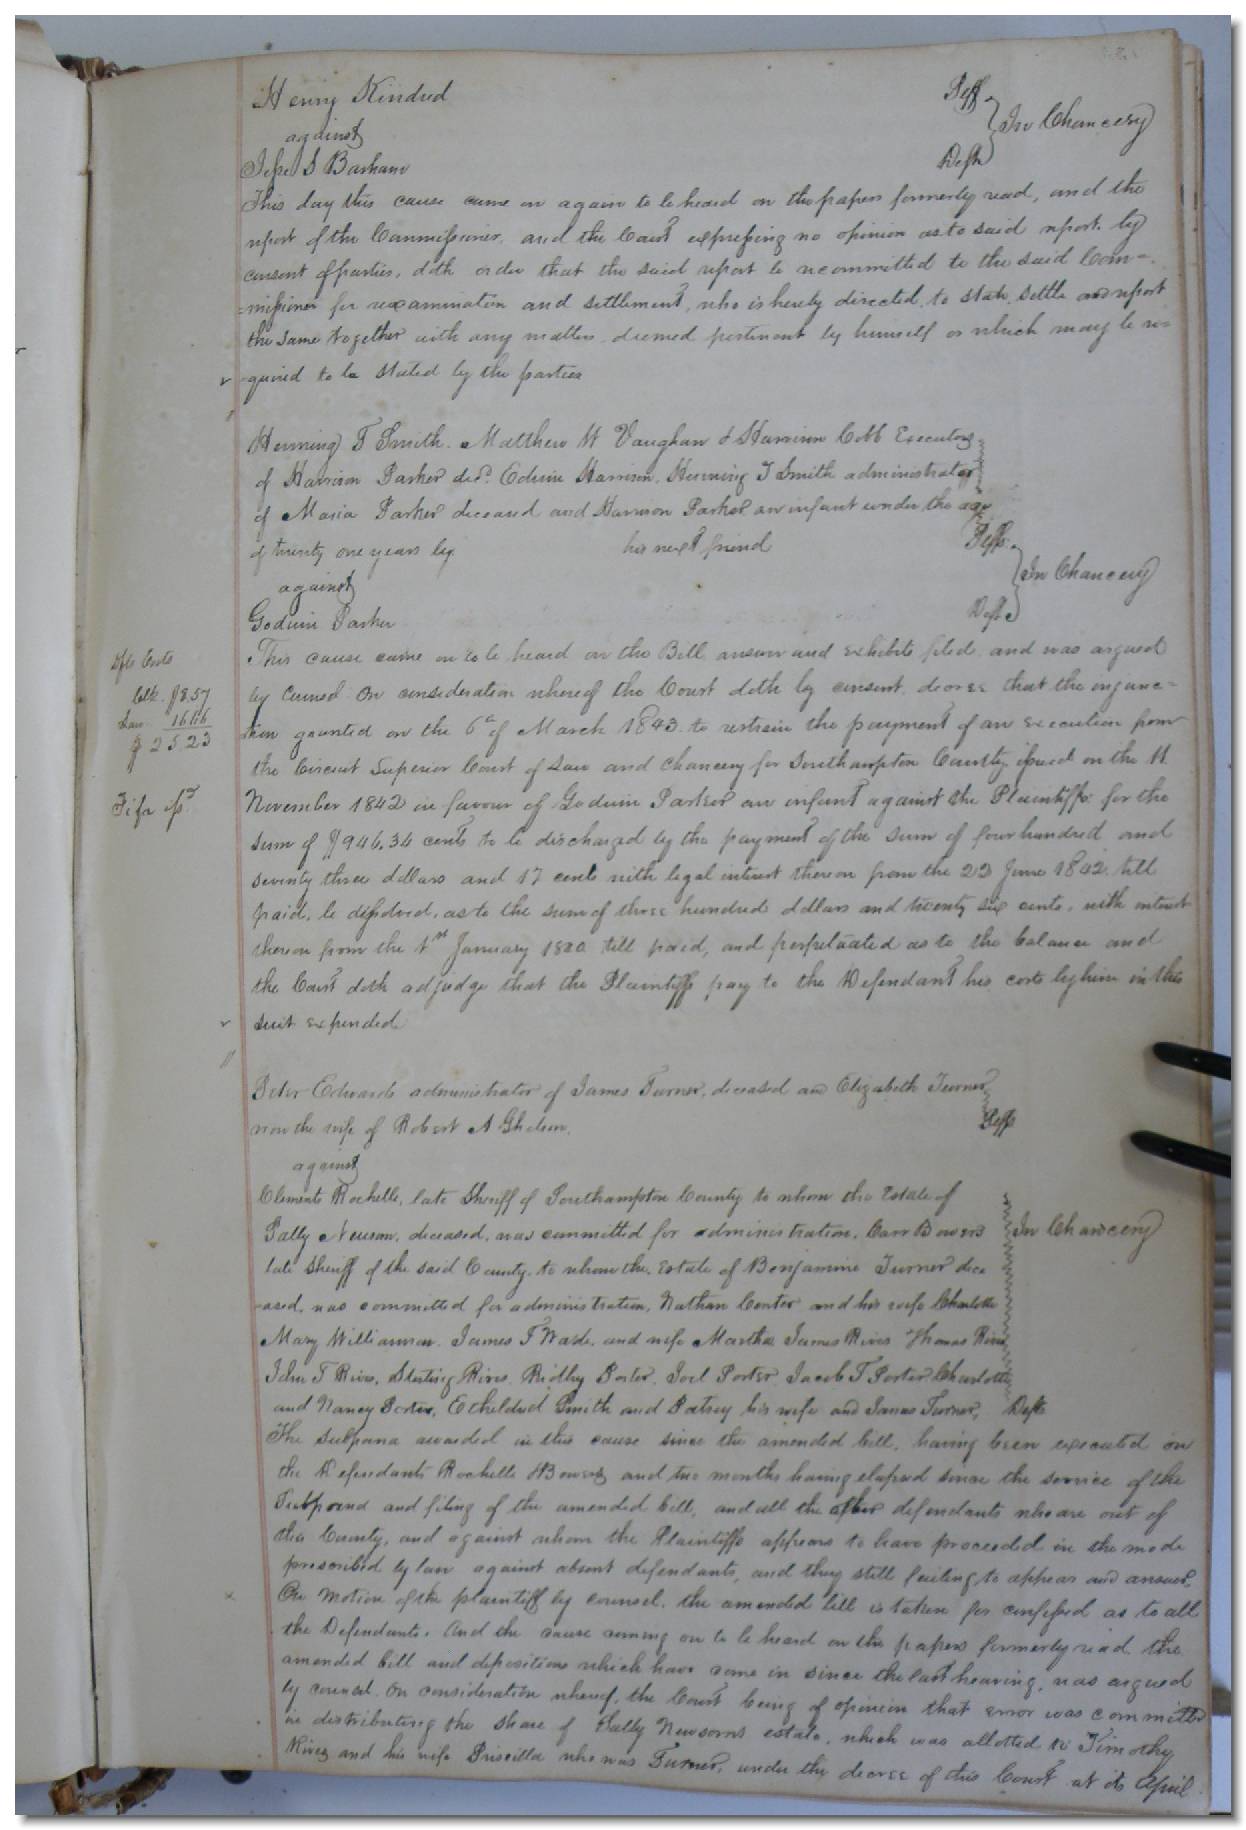 Henry Kindred Peff
against In Chancery
Jesse S Barham Deft
This day this cause came on again to be heard on the papers formerly read, and the
report of the Commissioner, and the Court expressing no opinion as to said report, by
consent of parties, doth order that the said report be recommitted to the said Com=
=missioner for reexamination and settlement, who is hereby directed to state, settle and report
the same together with any matters deemed pertinent by himself or which may be re=
quired to be stated by the parties
Henning T Smith. Matthew W Vaughan & Harrison Cobb Executors
of Harrison Parker decd. Edwin Harrison, Henning T Smith administrator
of Maria Parker deceased and Harrison Parker an infant under the age
of twenty one years by his next friend Peffs
against In Chancery
Godwin Parker Deft
This cause came on to be heard on the Bill, answer and exhibits filed, and was argued
by Counsel. On consideration whereof the Court doth by consent, decree that the injunc=
tion granted on the 6th of March 1843, to restrain the payment of an execution from
the Circuit Superior Court of Law and Chancery for Southampton County, issued on the 11
November 1842 in favour of Godwin Parker an infant against the Plaintiffs for the
sum of $946.34 cents to be discharged by the payment of the sum of four hundred and
seventy three dollars and 17 cents with legal interest thereon from the 22 June 1842 till
paid, be dissolved, as to the sum of three hundred dollars and twenty six cents, with interest
thereon from the 1st January 18 till paid, and perpetuated as to the balance and
the Court doth adjudge that the Plaintiffs pay to the Defendant his costs by him in this
suit expended
Dfts Costs
Clk. $8.57
Law 16.66
$25.23
Fi fa isd
Peter Edwards administrator of James Turner, deceased and Elizabeth Turner
now the wife of Robert A Gholson, Peffs
against
Clements Rochelle, late Sheriff of Southampton County to whom the Estate of
Sally Newsom, deceased, was committed for administration, Carr Bowers In Chancery
late Sheriff of the said County, to whom the Estate of Benjamin Turner dece
ased, was committed for administration, Nathan and his wife Charlotte
Mary Williamson, James T Wade, and wife Martha James Rives Thomas Rives
John T Rives, Sterling Rives, Ridley Porter, Joel Porter, Jacob T Porter, Charlotte
and Nancy Porter, Etheldred Smith and Patsey his wife and James Turner, Defts
The Subpœna awarded in this cause since the amended bill, having been executed on
the Defendants Rochelle & Bowers and two months having elapsed since the service of the
Subpœna and filing of the amended bill, and all the other defendants who are out of
this County, and against whom the Plaintiffs appears to have proceeded in the mode
prescribed by law against absent defendants, and they still failing to appear and answer,
On motion of the plaintiff by counsel, the amended bill is taken for confessed as to all
the Defendants. And the cause coming on to be heard on the papers formerly read the
amended bill and depositions which have come in since the last hearing, was argued
by counsel. On consideration whereof, the Court being of opinion that error was committed
in distributing the share of Sally Newsoms estate, which was allotted to Timothy
Rives and his wife Priscilla who was Turner, under the decree of this Court at its April